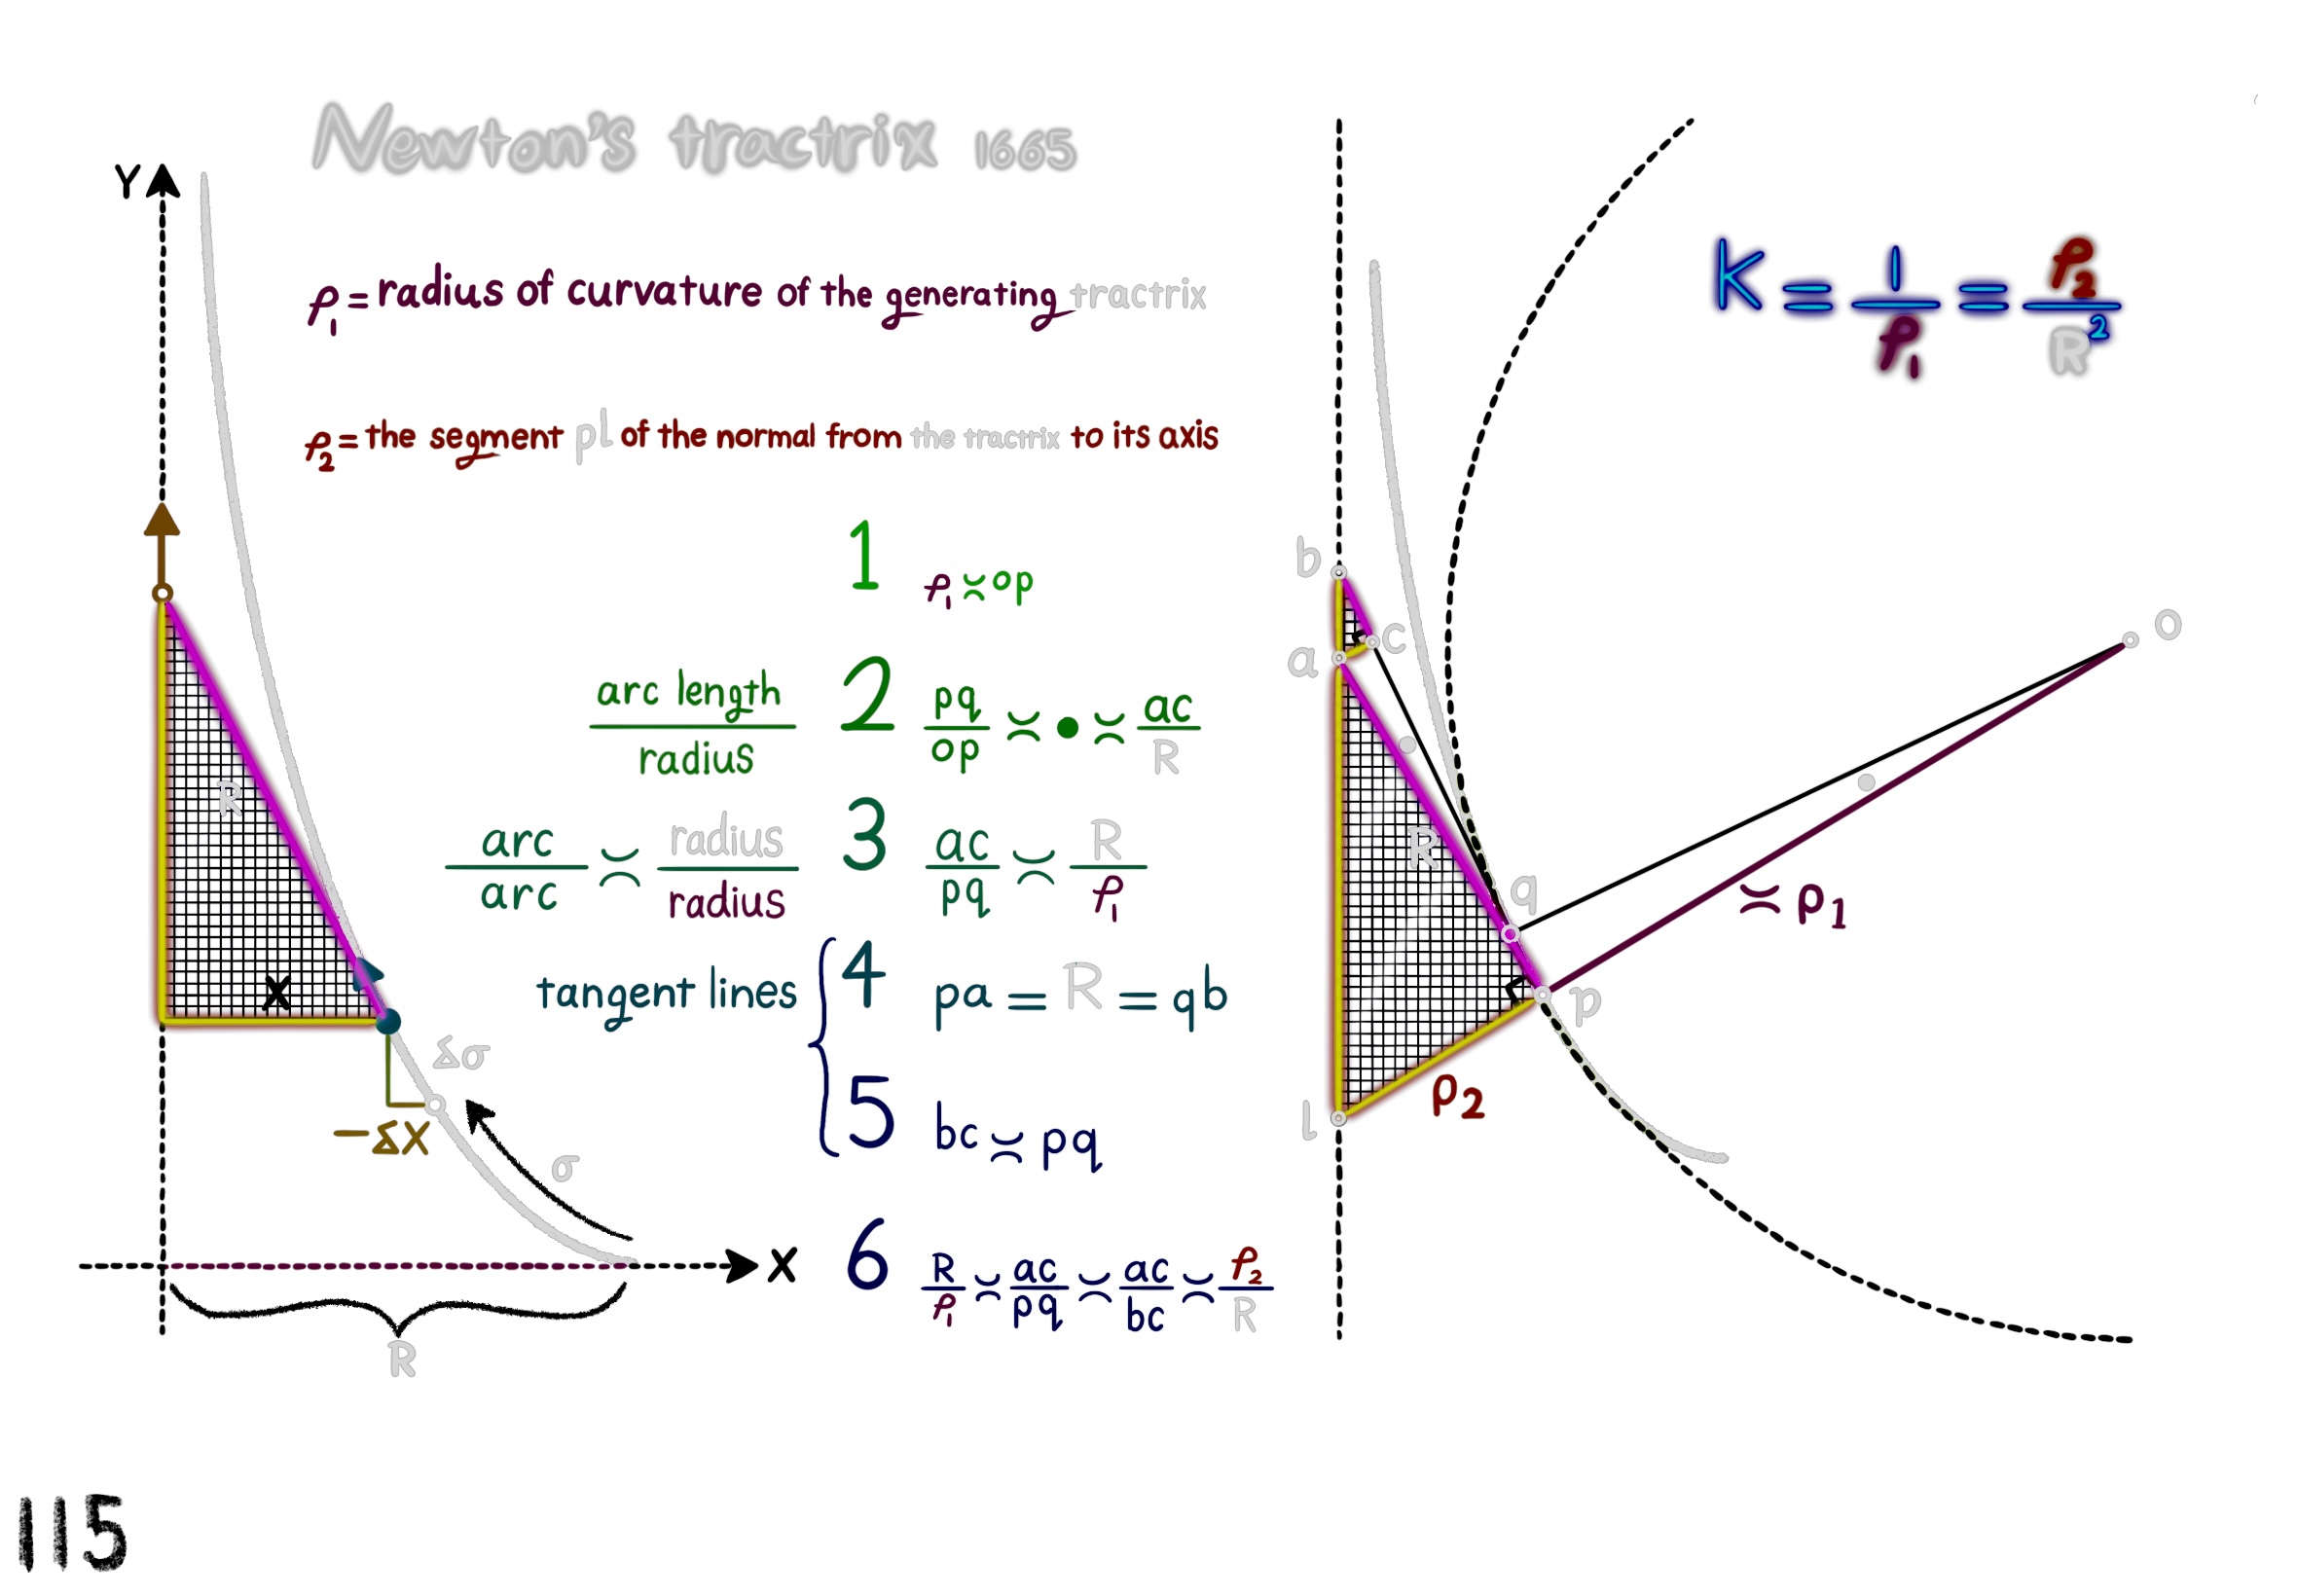 Newton's tractrix 1665
Y
ρ₁ = radius of curvature of the generating tractrix
ρ₂ = the segment pl of the normal from the tractrix to its axis
K ≡ 1/ρ₁ ≡ ρ₂/R²
1 ρ₁ ≍ op
arc length/radius 2 pq/op ≍ • ≍ ac/R
arc/arc ≍ radius/radius 3 ac/pq ≍ R/ρ₁
tangent lines { 4 pa = R = qb
5 bc ≍ pq
6 R/ρ₁ ≍ ac/pq ≍ ac/bc ≍ ρ₂/R
R
X
δσ
-δX
σ
X
R
b
c
a
o
R
q
≍ ρ1
p
ρ2
l
115